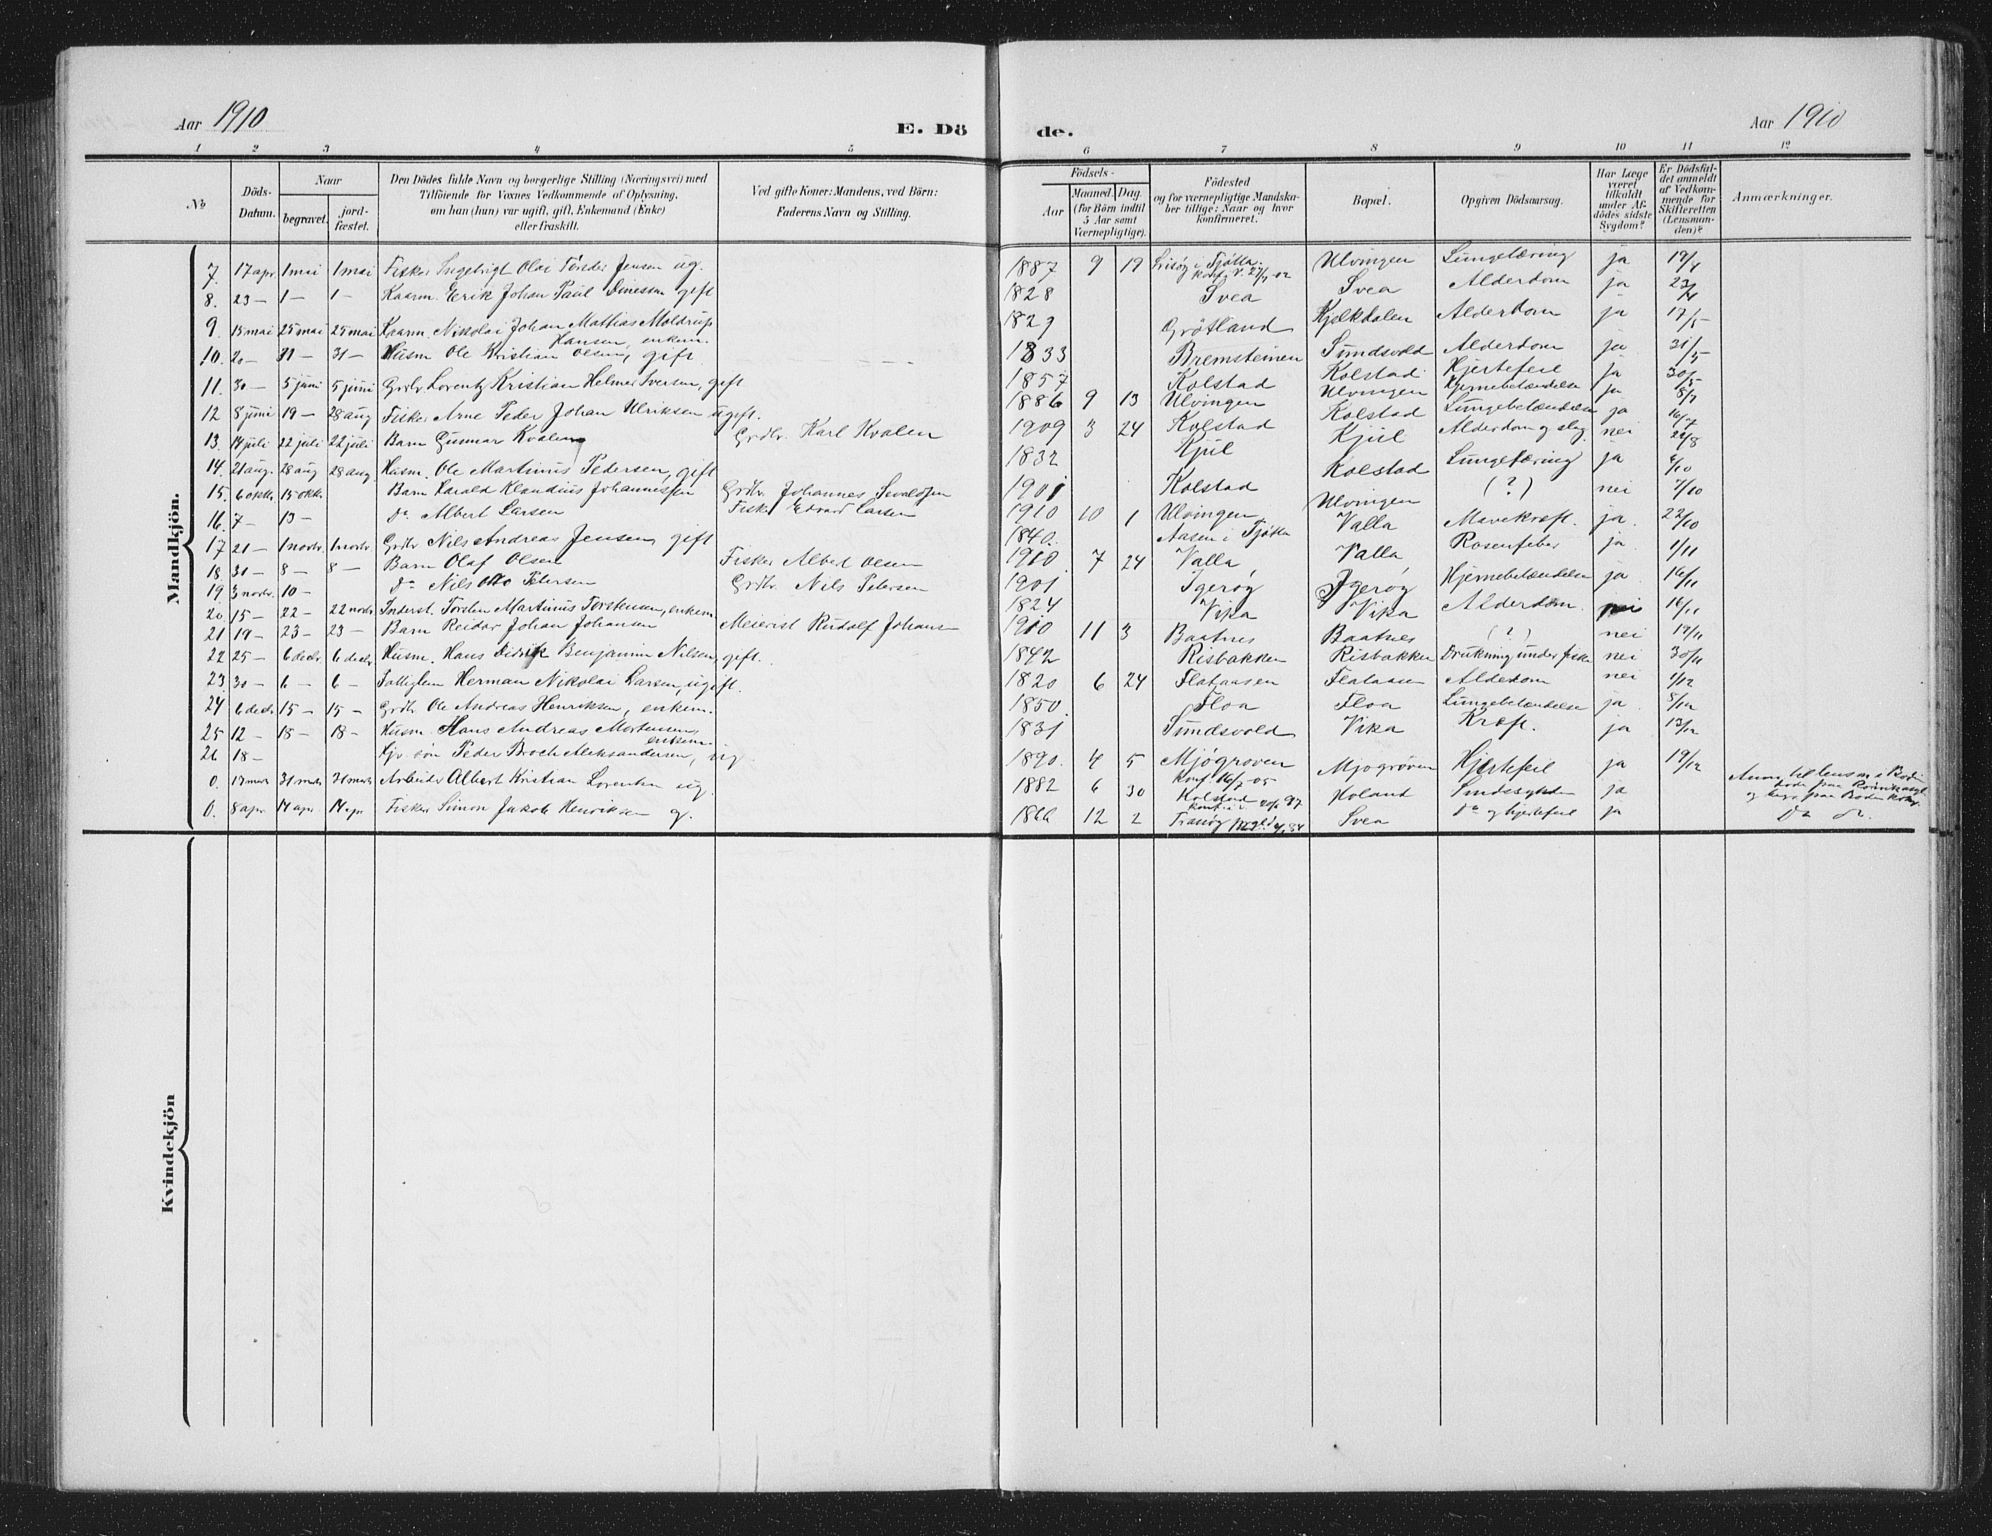 Aar 1910
E. Dö
de.
Aar 1910
1 2 3 4 5 6 7 8 9 10 11 12
No
Döds-Datum.
Naar
begravet.
jord-fæstet.
Den Dödes fulde Navn og borgerlige Stilling (Næringsvei) med
Tilföiende for Voxnes Vedkommende af Oplysning,
om han (hun) var ugift, gift, Enkemand (Enke)
eller fraskilt.
Ved gifte Koner: Mandens, ved Börn:
Faderens Navn og Stilling.
Födsels-
Aar
Maaned. Dag.
(for Börn indtil
5 Aar samt
Værnepligtige).
Födested
og for værnepligtige Mandska-
ber tillige: Naar og hvor
konfirmeret.
Bopæl.
Opgiven Dödsaarsag.
Har Læge
været
tilkaldt
under Af-
dödes sidste
Sygdom?
Er Dödsfal-
det anmeldt
af Vedkom-
mende for
Skifteretten
(Lensman-
den)?
Anmærkninger.
Mandkjön.
7. 17 apr. 1 mai 1 mai Fisker Ingebrigt Olai Tørder Jensen ug. 1887 9 19 i Tjøtta konf. Ulvingen Lungetæring ja 19/4
8. 23 — 1 — 1 — Kaarm. Erik Johan Paul Dinessen gift 1828 Svea Svea Alderdom ja 23/4
9. 13 mai 25 mai 25 mai Kaarm. Nikolai Johan Mattias Moldrup Hansen, enkem. 1829 Grötland Kjelkdalen Alderdom ja 17/5
10. 20 — 31 — 31 — Husm. Ole Kristian Olsen, gift 1833 Bremsteinen Sundsvold Alderdom ja 31/5
11. 30 — 5 juni 5 juni Grdbr. Lorentz Kristian Helmer Iversen, gift 1857 Kolstad Kolstad Hjertefeil ja 30/5
12 8 juni 19 — 28 aug Fisker Arne Peder Johan Ulriksen ugift. 1886 9 13 Ulvingen Ulvingen Hjernebetændelse ja 8/7
13. 14 juli 22 juli 22 juli Barn Gunnar Kvalen Grdbr. Karl Kvalen 1909 3 24 Kolstad Kolstad Lungebetændelse ja 16/7
14. 21 aug. 28 aug 28 aug Husm. Ole Martinus Pedersen, gift 1832 Kjul Kjul Alderdom og slag nei 22/8
15. 6 oktr. 15 oktr. Barn Harald Klaudius Johannessen Grdbr. Johannes Sevaldsen 1901 Kolstad Kolstad Lungetæring ja 6/10
16. 7 — 13 — do Albert Larsen Fisker Edvard Larsen 1910 10 1 Ulvingen Ulvingen (?) nei 7/10
17 21 — 1 novbr 1 novbr Grdbr Nils Andreas Jensen, gift 1840. Aasen i Tjøtta Valla Mavekræft. ja. 22/10
18. 31 — 8 — 8 — Barn Olaf Olsen Fisker Albert Olsen 1910. 7 24 Valla Valla Rosenfeber ja. 1/11
19. 3 novbr. 10 — do Nils Otto Petersen Grdbr. Nils Petersen 1901 Igerøg Igerøg Hjernebetændelse ja 16/11
20. 15 — 22 — 22 novbr Inderst. Torsten Martinus Torstensen, enkem. 1824 Vika Vika Alderdom. nei 16/11
21 19 — 23 — 23 — Barn Reidar Johan Johansen Meierist Rudolf Johansen 1910 11 3 Baatnes Baatnes (?) nei 19/11
22 25 — 6 decbr. 6 decbr. Husm. Hans Didrik Benjamin Nilsen, gift. 1842 Risbakken Risbakken Drukning under fiske nei 30/11
23. 30 — 6 — 6 — Fattiglem Herman Nikolai Larsen, ugift. 1820 6 24 Flataasen Flataasen Alderdom nei 1/12
24 6 decbr. 15 — 15 — Grdbr. Ole Andreas Henriksen, enkem. 1850. Floa Floa Lungebetændelse ja. 8/12
25 12 — 18 — 18 — Husm. Hans Andreas Mortensen, enkem. 1831 Sundsvold Vika Kræft. ja 13/12
26 18 — søn Peder Broch Aleksandersen, ug. 1890. 4 5 Mjøgroven konf. 16/7-05 Mjogrøven Hjertefeil ja 19/12
0. 17 mars 31 mars 31 mars Arbeider Albert Kristian Lorentsen ug. 1882 6 30 Kolstad 97 Holand Sindssygdom ja
0. 8 apr. 14 apr 14 apr Fisker Simon Jakob Henriksen g. 1866 12 2 Tranøy 84 Svea do og hjertefeil ja do do.
Kvindekjön